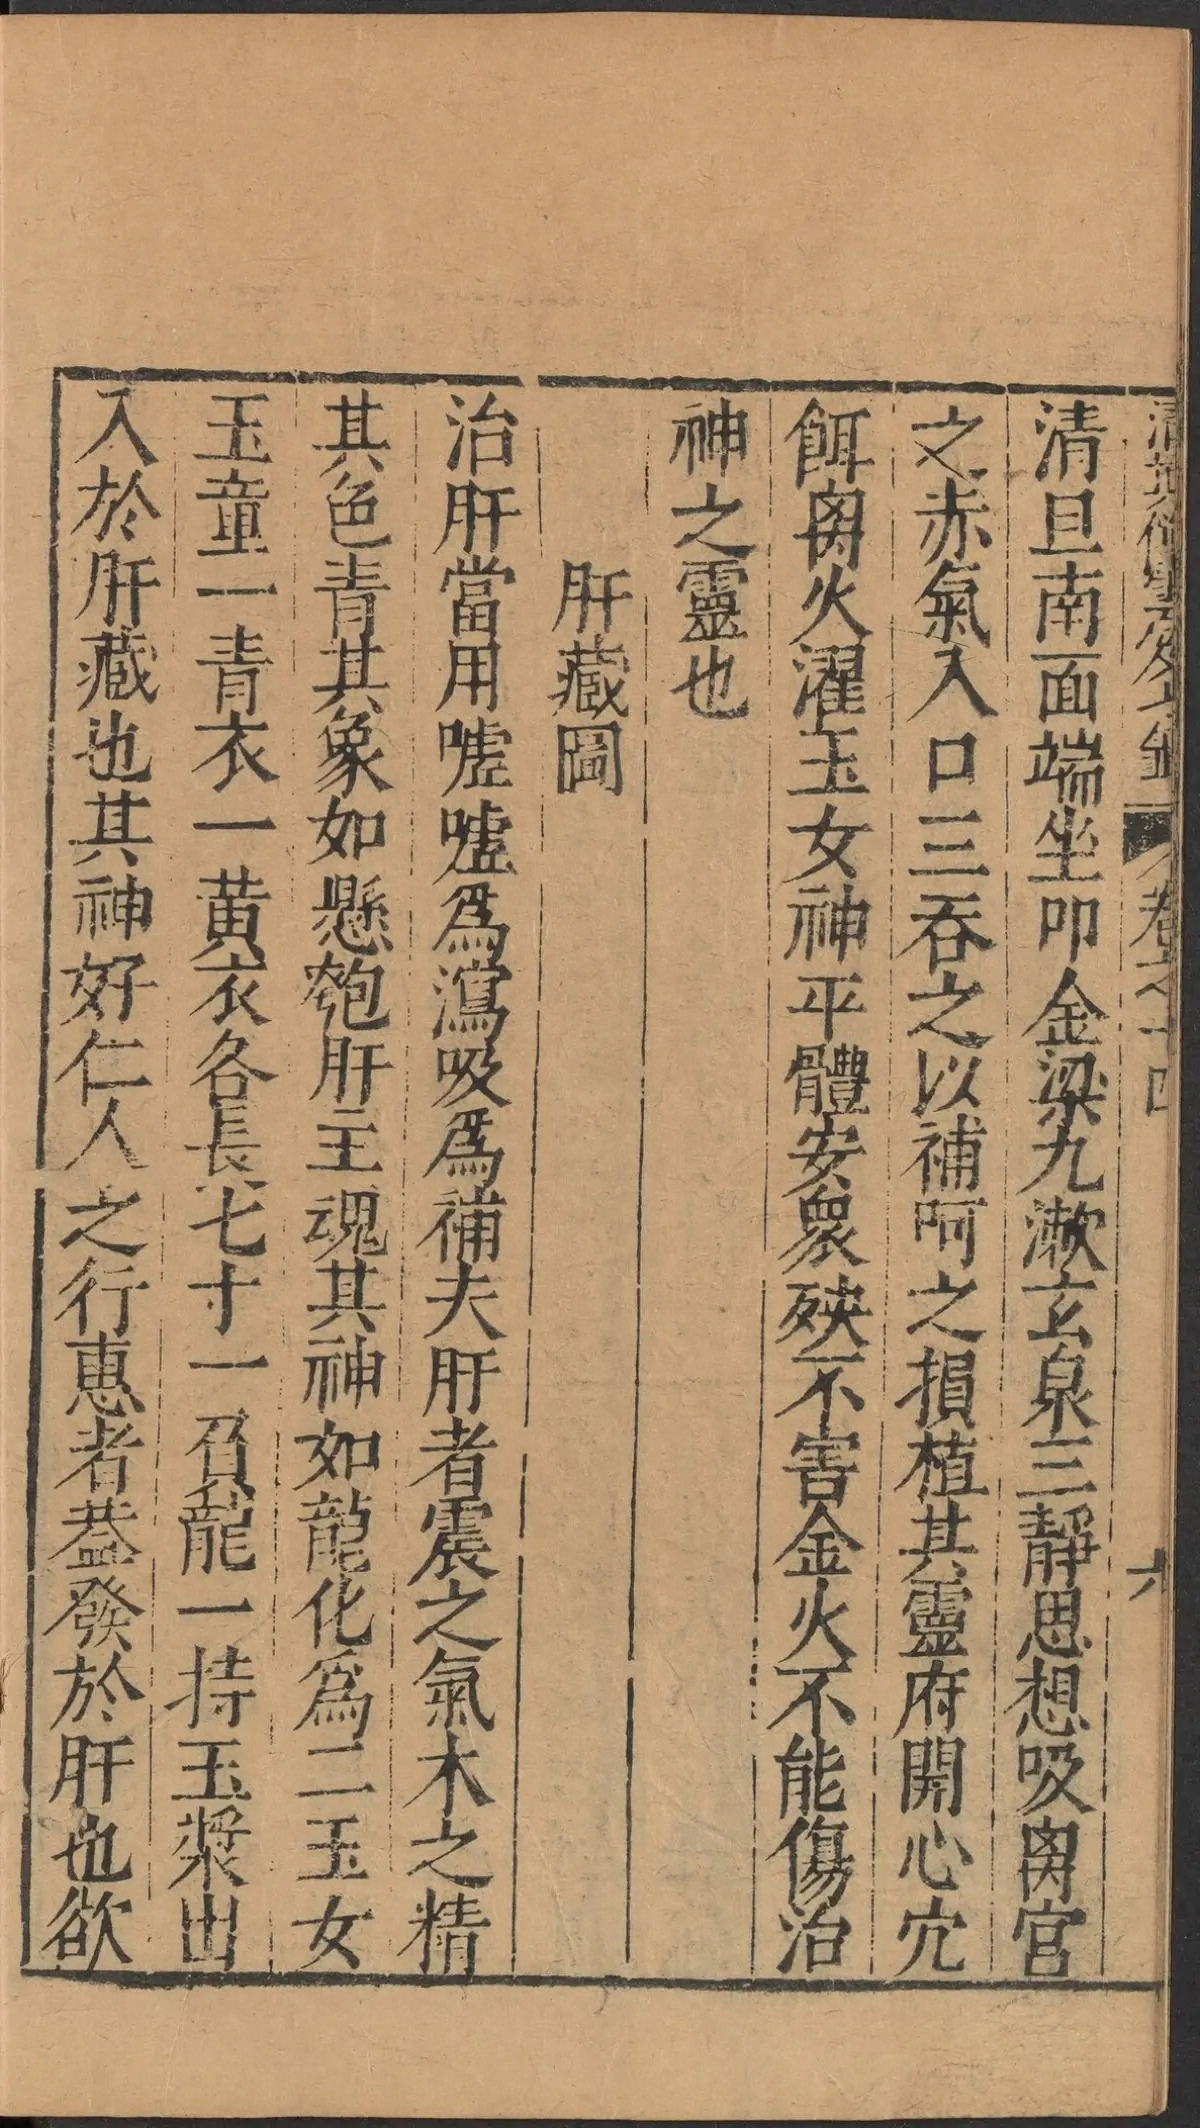 卷之十四
六
清旦南面端坐叩金梁九漱玄泉三靜思想吸离宮
之赤氣入口三吞之以補呵之損植其靈府開心穴
餌离火濯玉女神平體安衆殃不害金火不能傷治
神之靈也
肝藏圖
治肝當用噓噓爲瀉吸爲補夫肝者震之氣木之精
其色青其象如懸匏肝主魂其神如龍化爲二玉女
玉童一青衣一黃衣各長七寸一負龍一持玉漿出
入於肝藏也其神好仁人之行惠者葢發於肝也欲